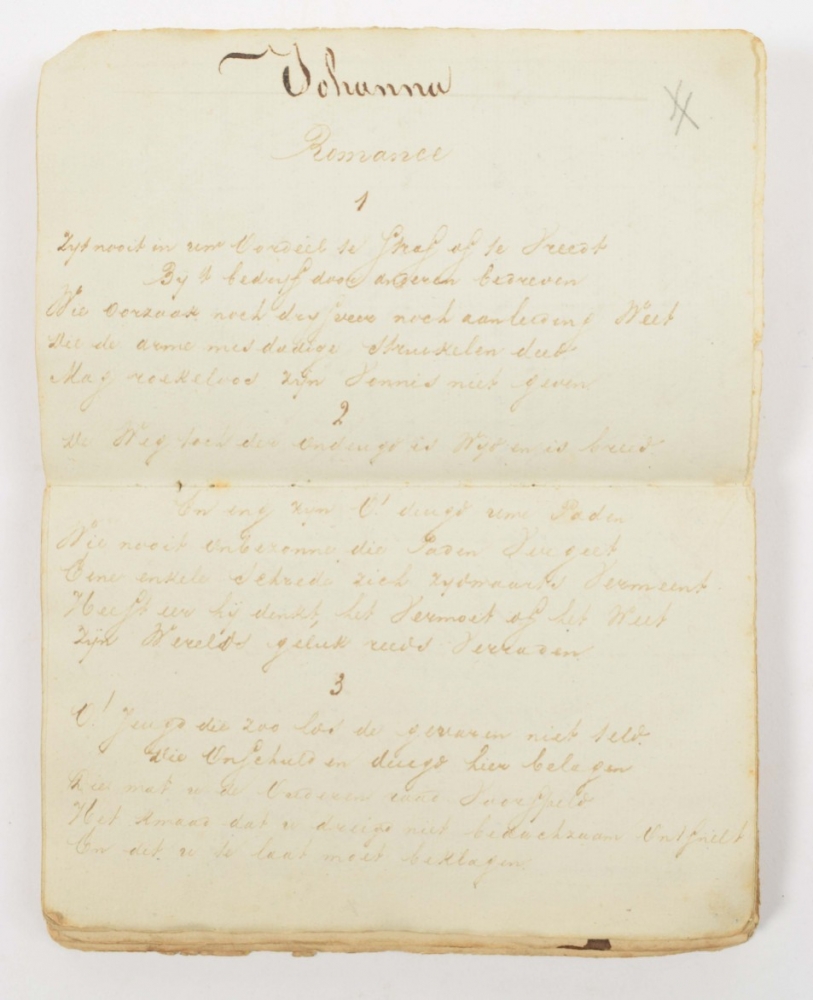 Johanna
Romance
1
Zyt nooit in uw Oordeel te straf of te Vreedt
By 't bedrijf door anderen bedreven
Wie Oorzaak noch dryfveer noch aanleiding Weet
Die de arme misdadige Struikelen deed
Mag roekeloos zijn Vonnis niet geven
2
De Weg toch der ondeugd is Wyd en is breed
En eng zyn O! deugd uwe Paden
Wie nooit onbezonne die Paden
Eene enkele Schrede zich zydwaarts Vermeent
Heeft eer hij denkt, het Vermoet of het Weet
Zyn Werelds geluk reeds Verraden
3
O! Jeugd die zoo los de gevaren niet teld
Die Onschuld en deugd hier belagen
Die met u de Ouderen Voorspeld
Het kwaad dat u dreigd niet bedachzaam Ontsnelt
En det u te laat moet beklagen